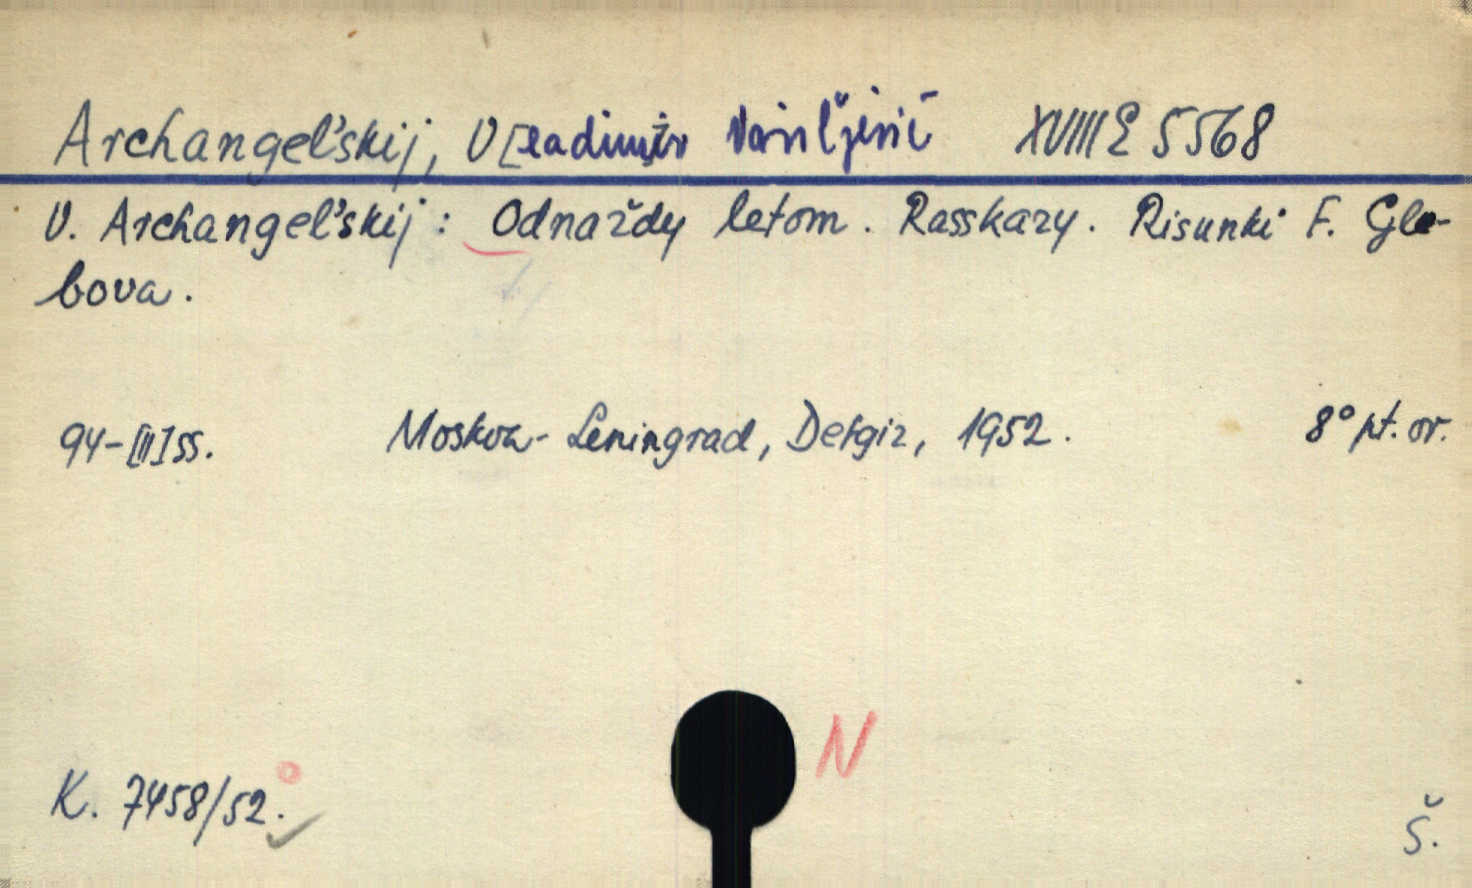 Archangel'skij, V[ladimir Vasiljevič XVIII E 5568
V. Archangel'skij: Odnaždy letom. Rasskazy. Risunki F. Gle-
bova.
94-[II] ss. Moskva-Leningrad, Detgiz, 1952. 8° pt. or.
N
K. 7458/52.
Š.